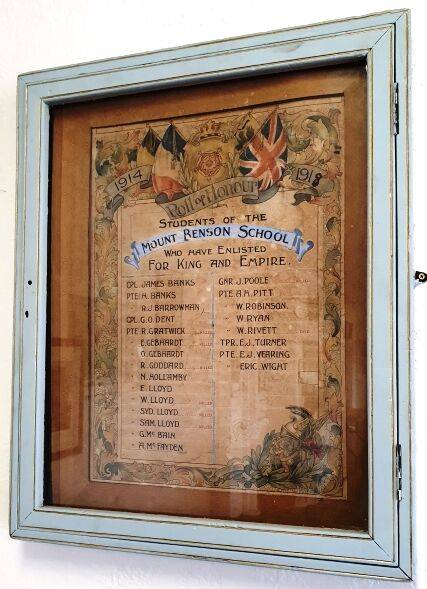 1914
1918
Roll of Honour
STUDENTS OF THE
MOUNT BENSON SCHOOL
WHO HAVE ENLISTED
FOR KING AND EMPIRE.
CPL. JAMES BANKS
PTE. H. BANKS
" R.J. BARROWMAN
CPL. G.O. DENT
PTE. R. GRATWICK KILLED
" E. GEBHARDT KILLED
" O. GEBHARDT
" R. GODDARD KILLED
" N. HOLLAMBY
" E. LLOYD
" W. LLOYD KILLED
" SYD. LLOYD KILLED
" SAM. LLOYD KILLED
" G. McBAIN
" A. McFAYDEN
GNR. J. POOLE
PTE. A.H. PITT
" W. ROBINSON.
" W. RYAN
" W. RIVETT
TPR. E.J. TURNER
PTE. E.J. VEARING
" ERIC. WIGHT